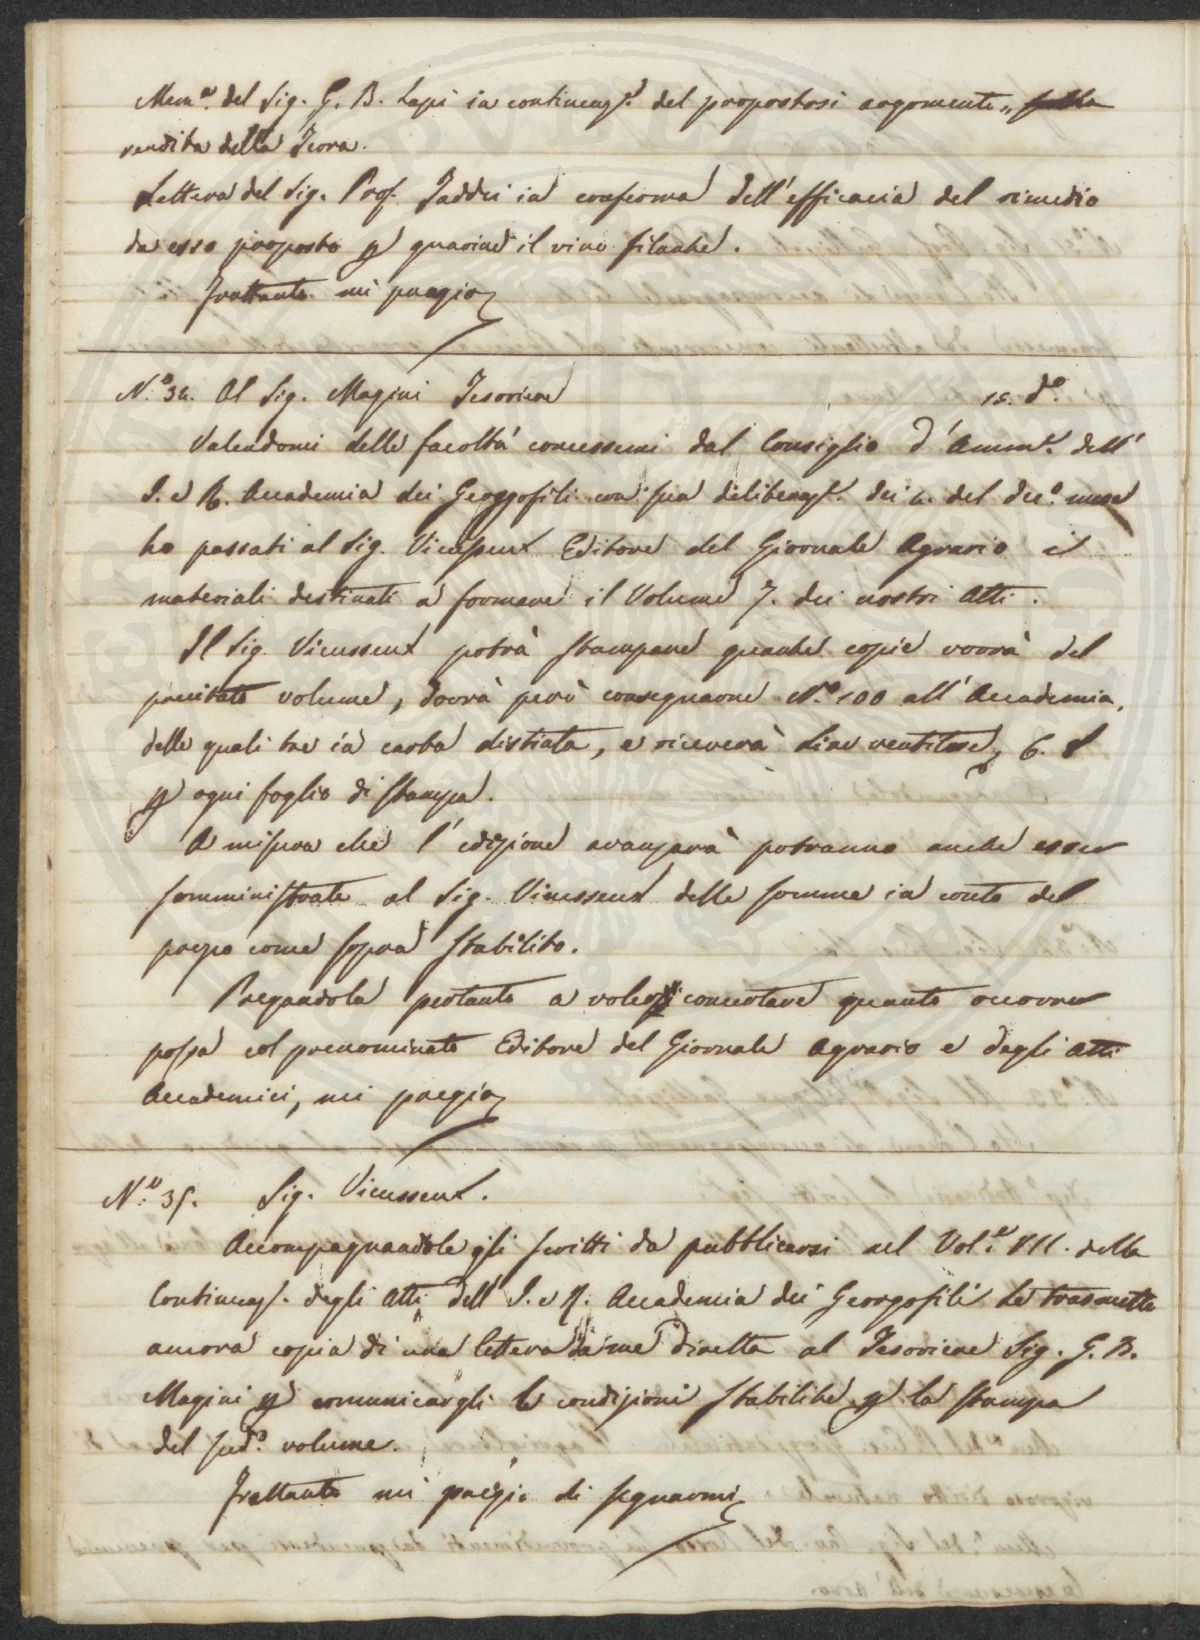 Mem.ª del Sig. G. B. Lapi in continuaz.e del propostosi argomento „ sulla
vendita della Terra.
Lettera del Sig. Prof. Taddei in conferma dell'efficacia del rimedio
da esso proposto p guarire il vino filante.
Frattanto mi pregio
N.º 34. Al Sig. Magini Tesoriere 15. d.º
Valendomi delle facoltà concessemi dal Consiglio d'Amm.e dell'
I. e R. Accademia dei Georgofili con sua deliberaz.e dei 4. del dec.º mese
ho passati al Sig. Vieusseux Editore del Giornale Agrario i
materiali destinati a formare il Volume 7. dei nostri Atti.
Il Sig. Vieusseux potrà stampare quante copie vorrà del
precitato volume, dovrà però consegnarne N.º 100 all'Accademia,
delle quali tre in carta distinta, e riceverà Lire ventitre, 6. 8
p ogni foglio di stampa.
A misura che l'edizione avanzerà potranno anche esser
somministrate al Sig. Vieusseux delle somme in conto del
prezzo come sopra stabilito.
Pregandola pertanto a voler concertare quanto occorrer
possa col prenominato Editore del Giornale Agrario e degli Atti
Accademici, mi pregio
N.º 35. Sig. Vieusseux.
Accompagnandole gli scritti da pubblicarsi nel Vol.e VII. della
Continuaz.e degli Atti dell'I. e R. Accademia dei Georgofili Le trasmetto
ancora copia di una lettera da me diretta al Tesoriere Sig. G. B.
Magini p comunicargli le condizioni stabilite p la stampa
del sud.º volume.
Frattanto mi pregio di segnarmi